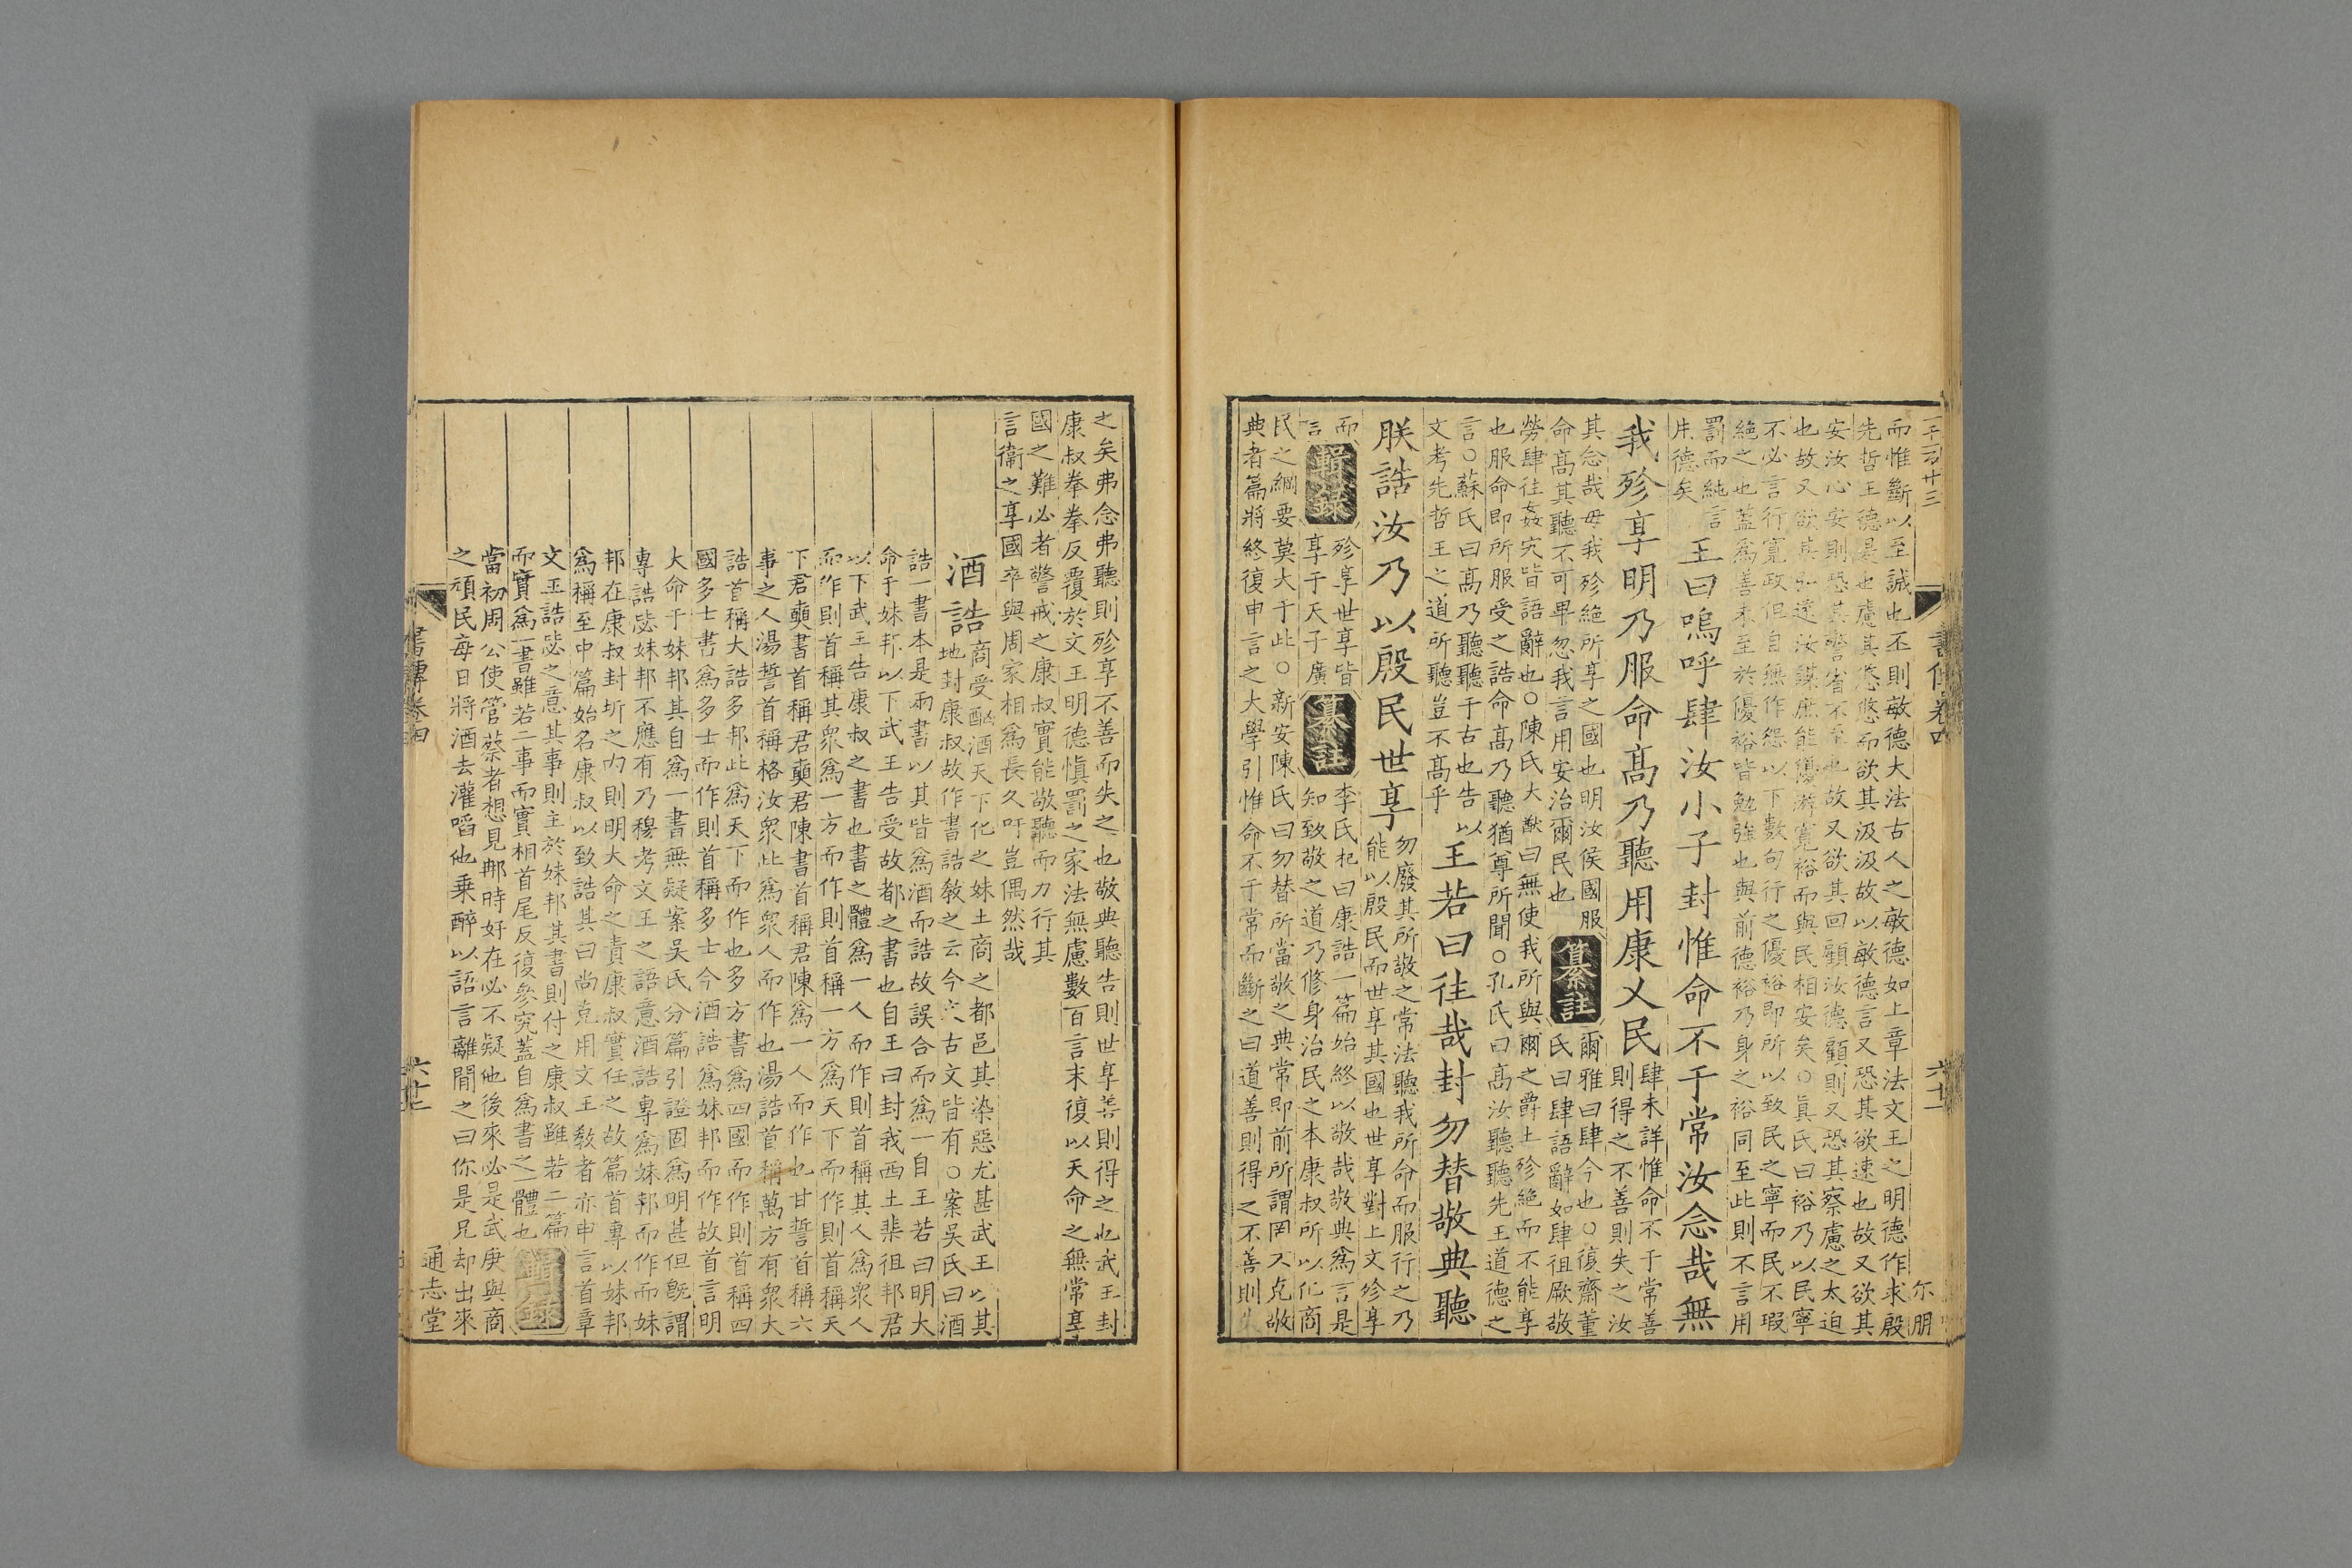 而惟斷以至誠也丕則敏德大法古人之敏德如上章法文王之明德作求殷
先哲王德是也慮其悠悠而欲其汲汲故以敏德言又恐其欲速也故又欲其
安汝心安則恐其警省不至也故又欲其回顧汝德顧則又恐其察慮之太迫
也故又欲其弘遠汝謀庶能優游寬裕而與民相安矣○眞氏曰裕乃以民寧
不必言行寬政但自無作怨以下數句行之優裕即所以致民之寧而民不瑕
絕之也蓋爲善未至於優裕皆勉強也與前德裕乃身之裕同至此則不言用
罰而純言
用德矣
王曰嗚呼肆汝小子封惟命不于常汝念哉無
我殄享明乃服命髙乃聽用康乂民
肆未詳惟命不于常善
則得之不善則失之汝
其念哉毋我殄絕所享之國也明汝侯國服
命髙其聽不可卑忽我言用安治爾民也
纂註
爾雅曰肆今也○復齋董
氏曰肆語辭如肆徂厥敬
勞肆往姦宄皆語辭也○陳氏大猷曰無使我所與爾之爵土殄絕而不能享
也服命即所服受之誥命髙乃聽猶尊所聞○孔氏曰髙汝聽聽先王道德之
言○蘇氏曰髙乃聽聽于古也告以
文考先哲王之道所聽豈不髙乎
王若曰徃哉封勿替敬典聽
朕誥汝乃以殷民世享
勿廢其所敬之常法聽我所命而服行之乃
能以殷民而世享其國也世享對上文殄享
而
言
輯錄
殄享世享皆
享于天子廣
纂註
李氏杞曰康誥一篇始終以敬哉敬典爲言是
知致敬之道乃修身治民之本康叔所以化商
民之綱要莫大于此○新安陳氏曰勿替所當敬之典常即前所謂罔不克敬
典者篇將終復申言之大學引惟命不于常而斷之曰道善則得之不善則失
書傳卷四
六十一
尓朋
之矣弗念弗聽則殄享不善而失之也敬典聽告則世享善則得之也武王封
康叔拳拳反覆於文王明德愼罰之家法無慮數百言末復以天命之無常享
國之難必者警戒之康叔實能敬聽而力行其
言衞之享國卒與周家相爲長久吁豈偶然哉
酒誥
商受酗酒天下化之妹土商之都邑其染惡尤甚武王以其
地封康叔故作書誥敎之云今文古文皆有○案吳氏曰酒
誥一書本是兩書以其皆爲酒而誥故誤合而爲一自王若曰明大
命于妹邦以下武王告受故都之書也自王曰封我西土棐徂邦君
以下武王告康叔之書也書之體爲一人而作則首稱其人爲衆人
而作則首稱其衆爲一方而作則首稱一方爲天下而作則首稱天
下君奭書首稱君奭君陳書首稱君陳爲一人而作也甘誓首稱六
事之人湯誓首稱格汝衆此爲衆人而作也湯誥首稱萬方有衆大
誥首稱大誥多邦此爲天下而作也多方書爲四國而作則首稱四
國多士書爲多士而作則首稱多士今酒誥爲妹邦而作故首言明
大命于妹邦其自爲一書無疑案吳氏分篇引證固爲明甚但旣謂
專誥毖妹邦不應有乃穆考文王之語意酒誥專爲妹邦而作而妹
邦在康叔封圻之內則明大命之責康叔實任之故篇首專以妹邦
爲稱至中篇始名康叔以致誥其曰尚克用文王敎者亦申言首章
文王誥毖之意其事則主於妹邦其書則付之康叔雖若二篇
而實爲一書雖若二事而實相首尾反復參究蓋自爲書之一體也
輯錄
當初周公使管蔡者想見那時好在必不疑他後來必是武庚與商
之頑民每日將酒去灌㗖他乗醉以語言離間之曰你是兄却出來
書傳卷四
六十二
通志堂